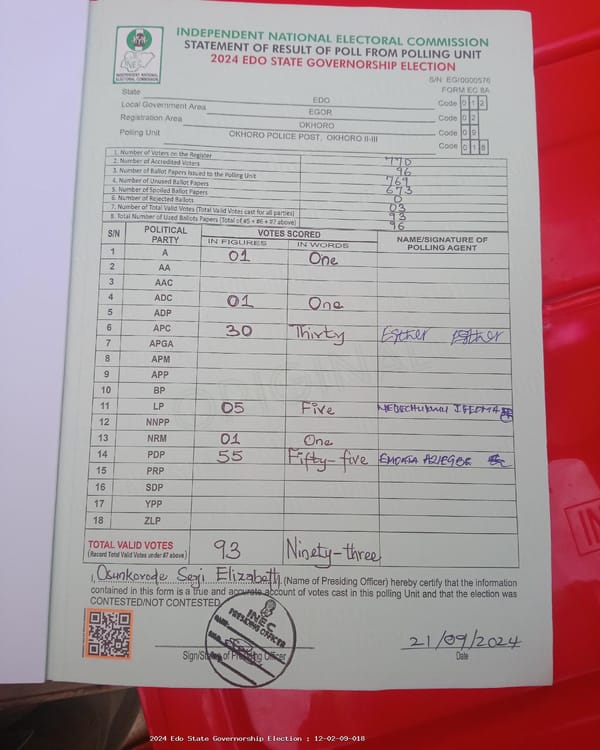 INDEPENDENT NATIONAL ELECTORAL COMMISSION
STATEMENT OF RESULT OF POLL FROM POLLING UNIT
2024 EDO STATE GOVERNORSHIP ELECTION
INDEPENDENT NATIONAL ELECTORAL COMMISSION
S/N EG/0000576
FORM EC 8A
State EDO Code 0 1 2
Local Government Area EGOR Code 0 2
Registration Area OKHORO Code 0 9
Polling Unit OKHORO POLICE POST, OKHORO II-III Code 0 1 8
1. Number of Voters on the Register 770
2. Number of Accredited Voters 96
3. Number of Ballot Papers Issued to the Polling Unit 769
4. Number of Unused Ballot Papers 673
5. Number of Spoiled Ballot Papers 0
6. Number of Rejected Ballots 03
7. Number of Total Valid Votes (Total Valid Votes cast for all parties) 93
8. Total Number of Used Ballots Papers (Total of #5 + #6 + #7 above) 96
S/N POLITICAL PARTY VOTES SCORED NAME/SIGNATURE OF POLLING AGENT
IN FIGURES IN WORDS
1 A 01 One
2 AA
3 AAC
4 ADC 01 One
5 ADP
6 APC 30 Thirty Esther Esther
7 APGA
8 APM
9 APP
10 BP
11 LP 05 Five
12 NNPP
13 NRM 01 One
14 PDP 55 Fifty-five
15 PRP
16 SDP
17 YPP
18 ZLP
TOTAL VALID VOTES 93 Ninety-three
(Record Total Valid Votes under #7 above)
I, Osunkorode Seyi Elizabeth (Name of Presiding Officer) hereby certify that the information
contained in this form is a true and accurate account of votes cast in this polling Unit and that the election was
CONTESTED/NOT CONTESTED
INEC
PRESIDING OFFICER
21/09/2024
Sign/Stamp of Presiding Officer Date
2024 Edo State Governorship Election : 12-02-09-018